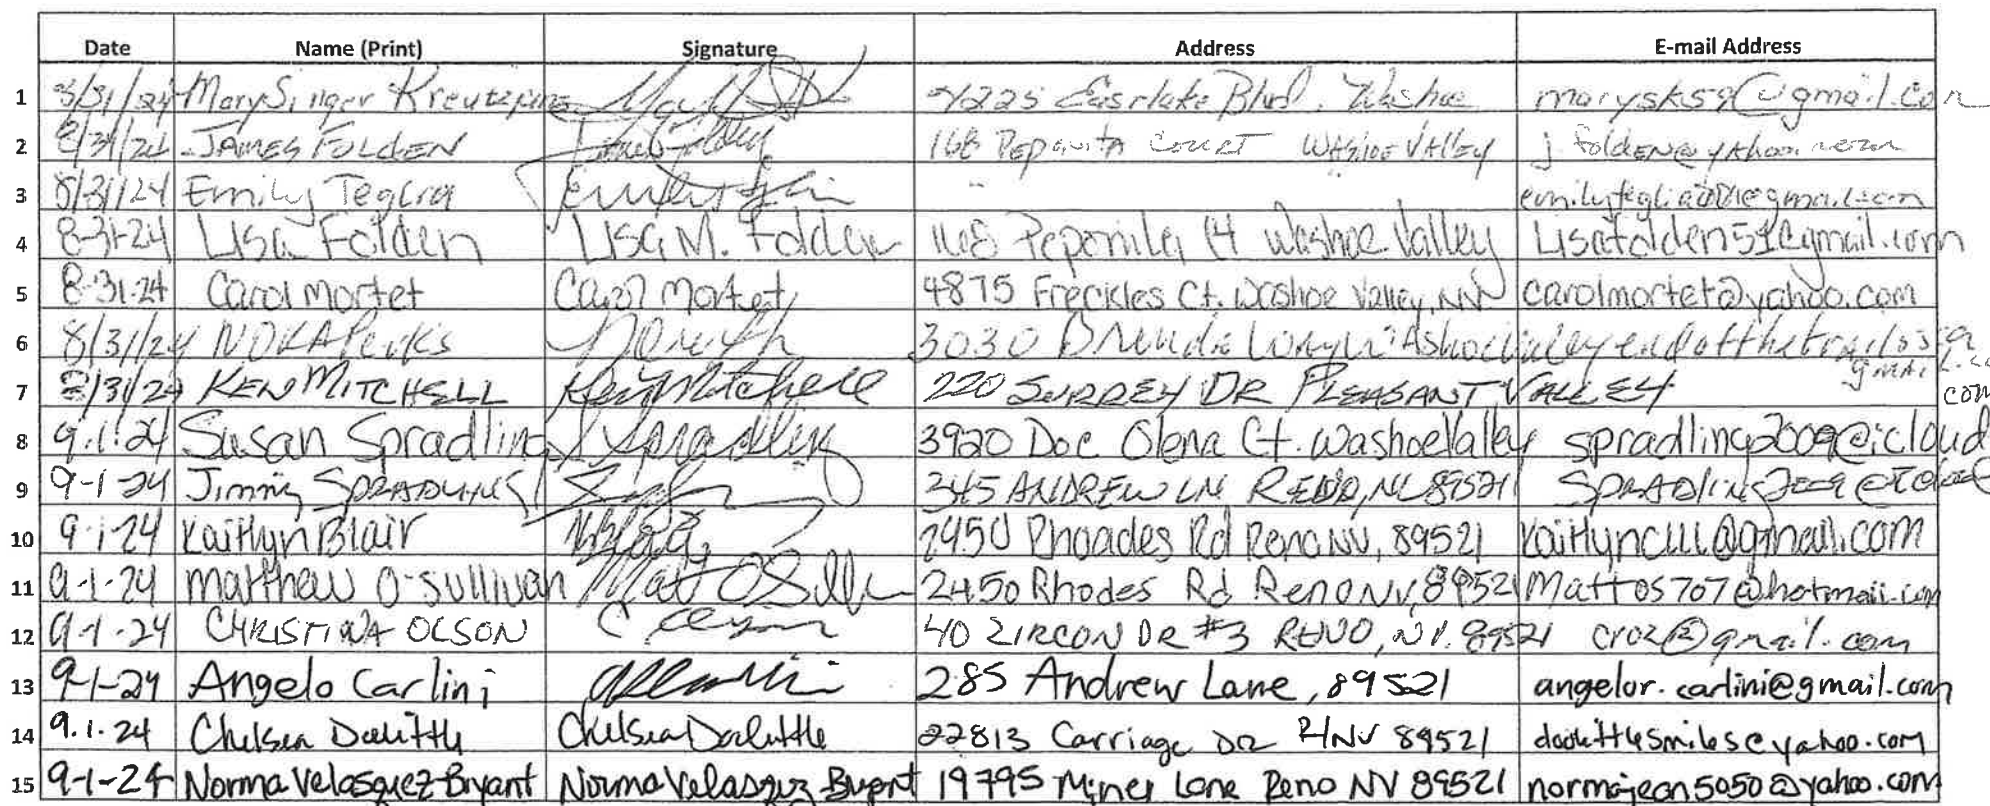 Date Name (Print) Signature Address E-mail Address
1 8/31/24 Mary Singer 4225 Eastlake Blvd. Washoe marysks59@gmail.com
2 8/31/24 JAMES FOLDEN James Folden 168 Peponita COURT WASHOE VAllEy jfolden@yahoo
3 8/31/24 Emily Teglia
4 8-31-24 Lisa Folden Lisa M. Folden 168 Peponita Ct Washoe Valley Lisafolden51@gmail.com
5 8-31-24 Carol Mortet Carol Mortet 4875 Freckles Ct. Washoe Valley, NV carolmortet@yahoo.com
6 8/31/24 3030 Washoe Valley endofthetrail
gmail.com
7 8/31/24 KEN MITCHELL Ken Mitchell 220 SURREY DR PLEASANT VALLEY
com
8 9.1.24 Susan Spradling S Spradling 3920 Doc Olena Ct. Washoe Valley spradling2009@icloud
9 9-1-24 SPRADLING 345 ANDREW LN RENO, NV 89521 Spradling2009@icloud
10 9-1-24 Kaitlyn Blair 2450 Rhoades Rd Reno NV, 89521
11 9-1-24 Matthew O'Sullivan Matt O'Sulli 2450 Rhodes Rd Reno NV, 89521 Mattos707@hotmail.com
12 9-1-24 CHRISTINA OLSON 40 ZIRCON DR #3 RENO, NV. 89521
13 9-1-24 Angelo Carlini 285 Andrew Lane, 89521 angelor.carlini@gmail.com
14 9.1.24 Chelsea Doolittle Chelsea Doolittle 22813 Carriage DR RNV 89521 doolittlesmiles@yahoo.com
15 9-1-24 Norma Velasquez-Bryant Norma Velasquez-Bryant 19795 Miner Lane Reno NV 89521 normajean5050@yahoo.com